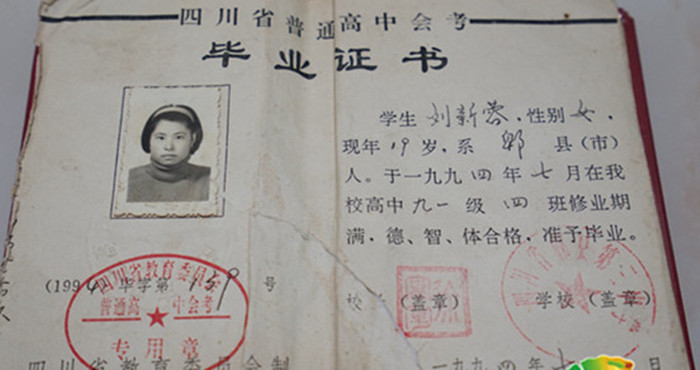 四川省普通高中会考
毕业证书
学生刘新蓉,性别女,
现年19岁,系郫县(市)
人。于一九九四年七月在我
校高中九一级四班修业期
满,德、智、体合格,准予毕业。
(1994)毕字第159号
四川省教育委员会
普通高中会考
专用章
校长(盖章)
学校(盖章)
四川省教育委员会制
一九九四年七